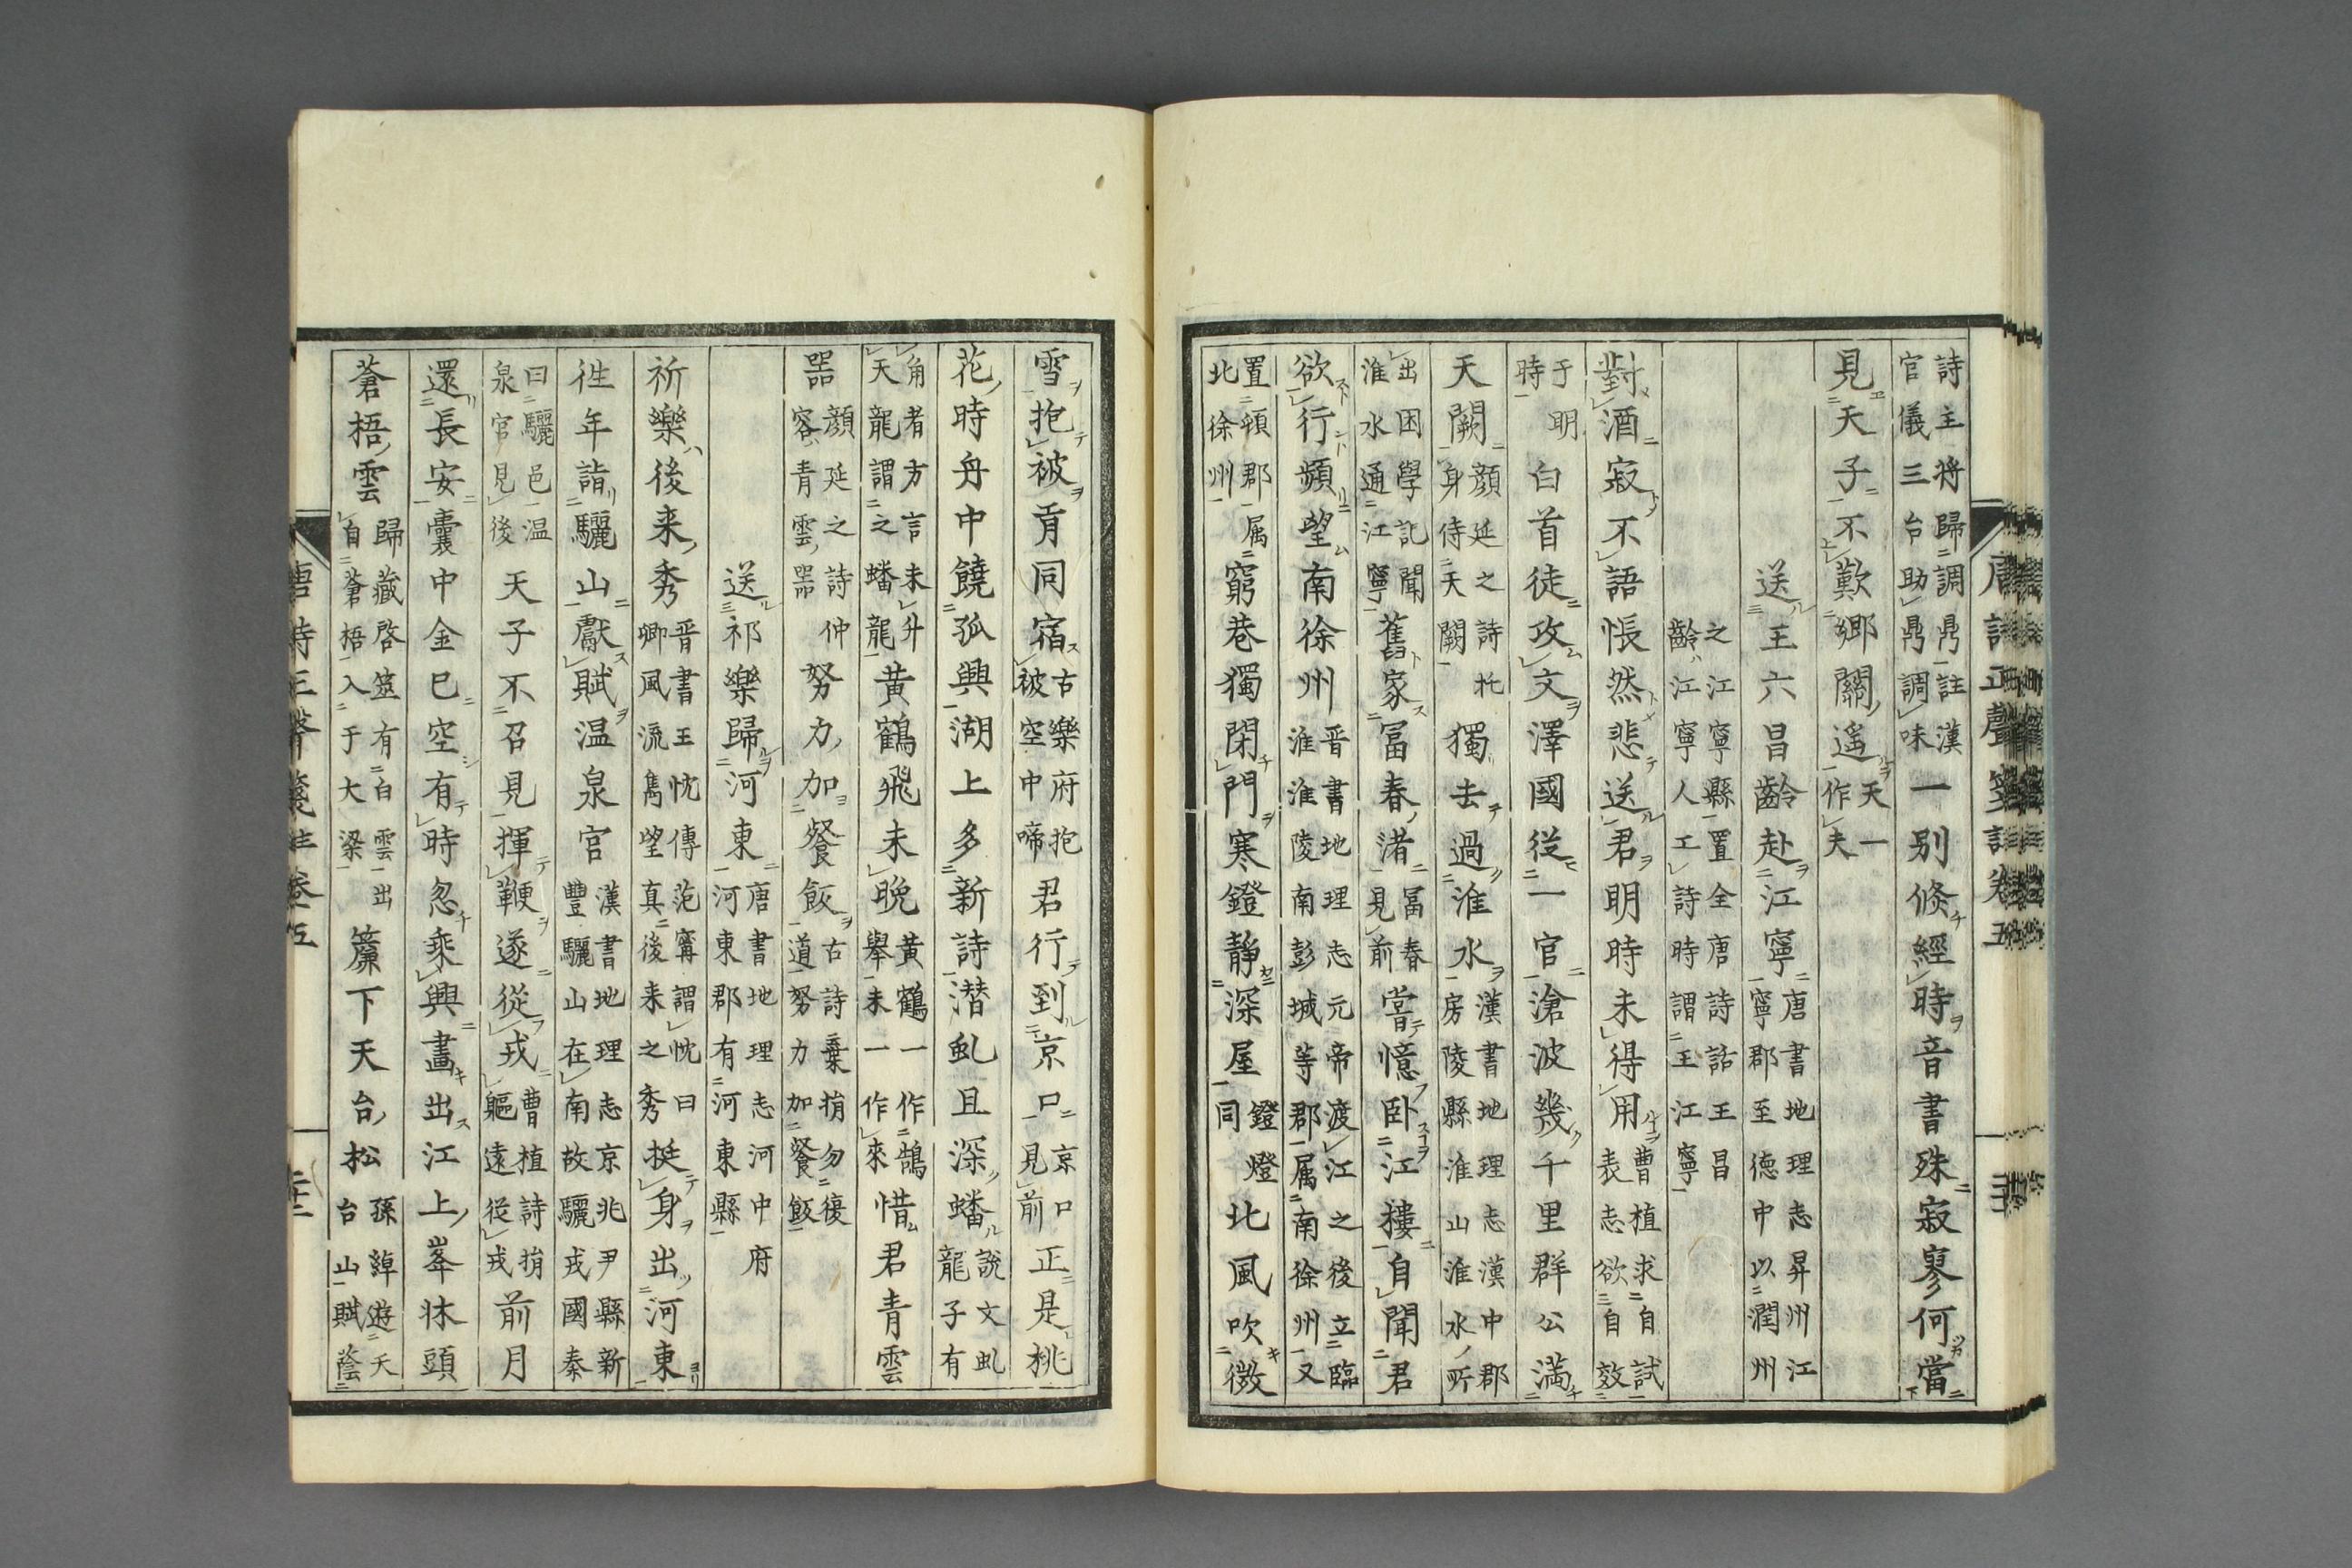 唐詩正聲箋註卷五
詩主将歸調鼎註漢官儀三台助鼎調味一别倏經時音書殊寂寥何當
見天子不歎鄉關遥天一作夫
送王六昌齡赴江寧唐書地理志昇州江寧郡至德中以潤州
之江寧縣置全唐詩話王昌齡江寧人工詩時謂王江寧
對酒寂不語悵然悲送君明時未得用曹植求自試表志欲自效
于明時白首徒攻文澤國從一官滄波幾千里群公滿
天闕顔延之詩托身侍天闕獨去過淮水漢書地理志漢中郡房陵縣淮山淮水所
出困學記聞淮水通江寧舊家冨春渚冨春見前嘗憶卧江樓自聞君
欲行頻望南徐州晋書地理志元帝渡江之後立臨淮淮陵南彭城等郡属南徐州又
置頓郡属北徐州窮巷獨閉門寒鐙靜深屋鐙燈同北風吹微
雪抱被肯同宿古樂府抱被空中啼君行到京口京口見前正是桃
花時舟中饒孤興湖上多新詩潜虬且深蟠說文虬龍子有
角者方言未升天龍謂之蟠龍黄鶴飛未晩黄鶴一作鵠舉未一作來惜君青雲
噐顔延之詩仲容青雲噐努力加餐飯古詩棄捐勿復道努力加餐飯
送祁樂歸河東唐書地理志河中府河東郡有河東縣
祈樂後来秀晋書王忱傳范寗謂忱曰卿風流雋望真後来之秀挺身出河東
徃年詣驪山獻賦温泉宮漢書地理志京兆尹縣新豐驪山在南故驪戎國秦
曰驪邑温泉宮見後天子不召見揮鞭遂從戎曹植詩捐軀遠從戎前月
還長安囊中金巳空有時忽乘興畫出江上峯牀頭
蒼梧雲歸藏啓筮有白雲出自蒼梧入于大梁簾下天台松孫綽遊天台山賦蔭